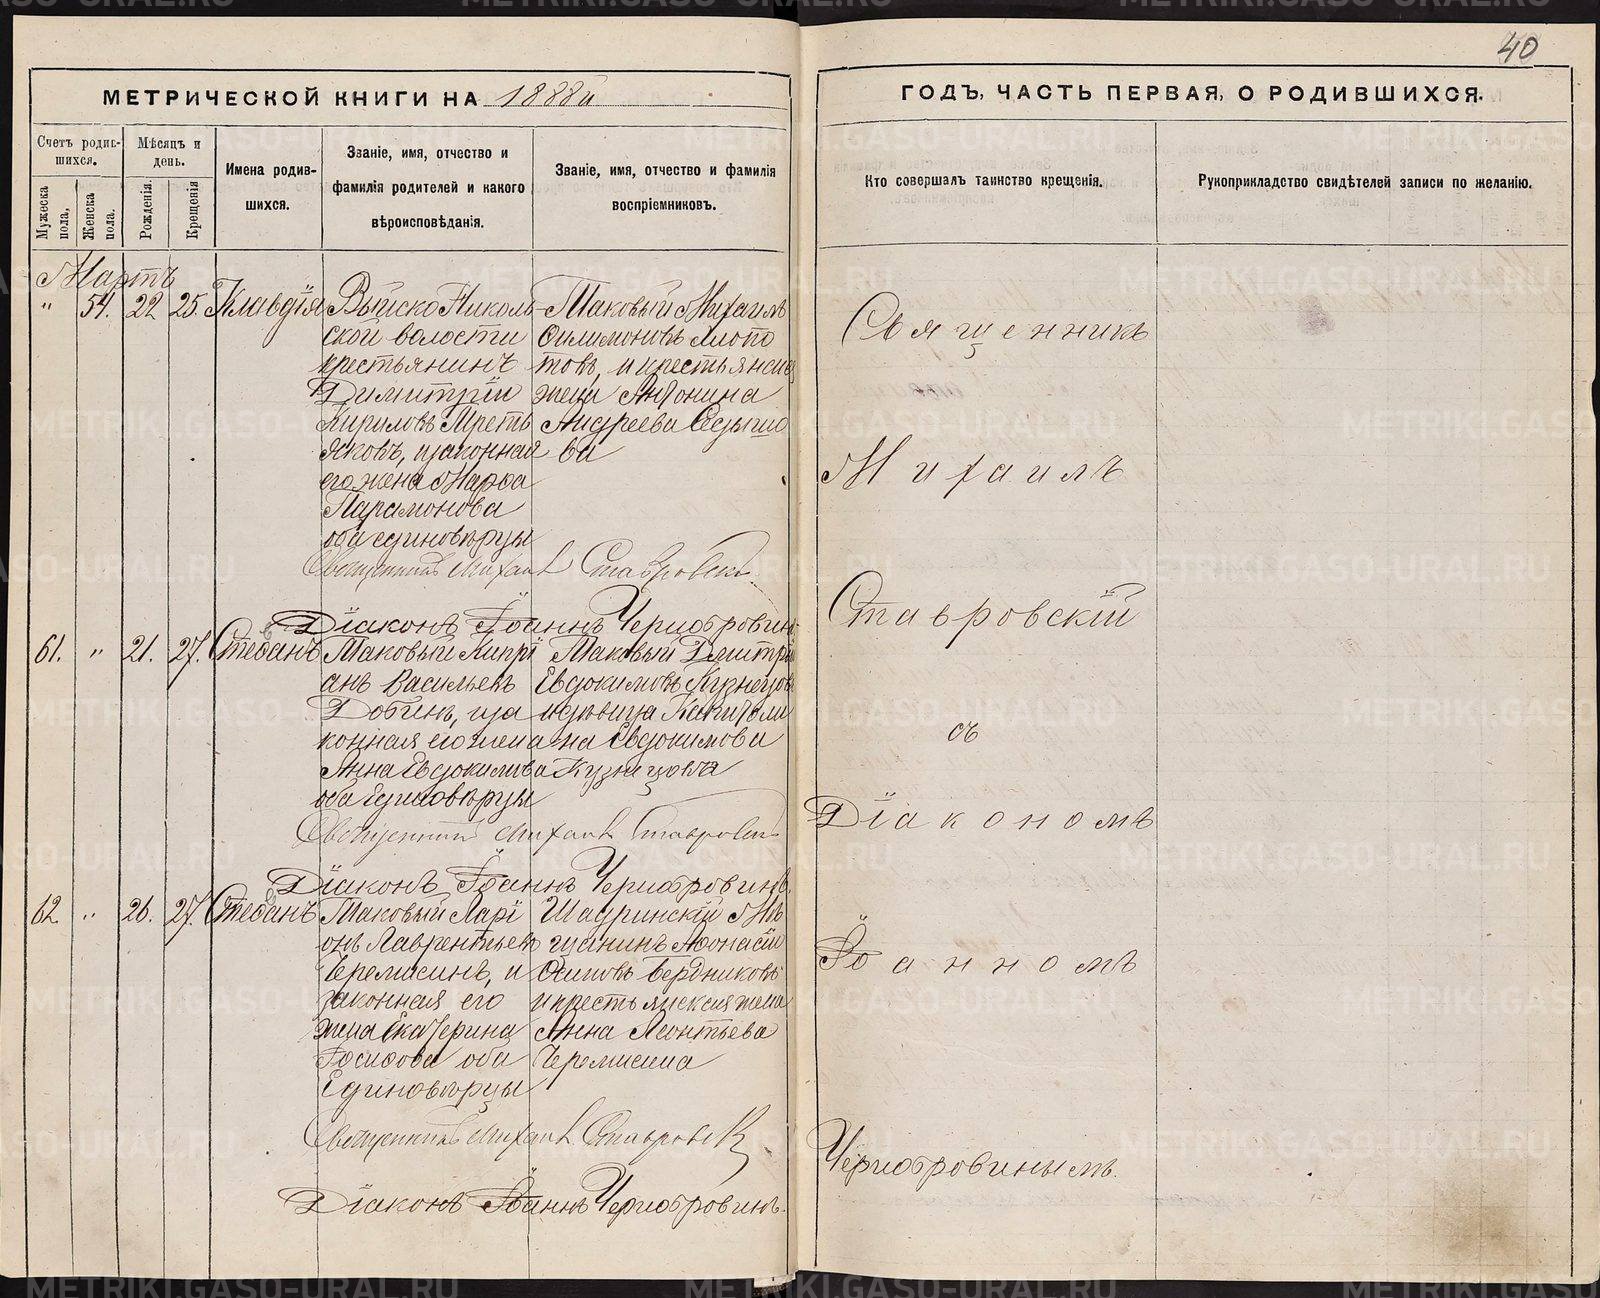 40
МЕТРИЧЕСКОЙ КНИГИ НА 1888й
ГОДЪ, ЧАСТЬ ПЕРВАЯ, О РОДИВШИХСЯ.
Счетъ родив-
шихся.
Мужеска
пола,
Женска
пола.
Мѣсяцъ и
день.
Рожденія.
Крещенія
Имена родив-
шихся.
Званіе, имя, отчество и
фамилія родителей и какого
вѣроисповѣданія.
Званіе, имя, отчество и фамилія
воспріемниковъ.
Кто совершалъ таинство крещенія.
Рукоприкладство свидѣтелей записи по желанію.
Мартъ
„ 54. 22 25. Клавдія
Выйско Николь-
ской волости
крестьянинъ
Димитрій
Кириловъ Треть
яковъ, и законная
его жена Марѳа
Парамонова
оба единовѣрцы
Таковый Михаилъ
Филимоновъ
товъ, и крестьянская
жена Антонина
Андреева Едыше
ва
Священникъ Михаилъ Ставровскій
Діаконъ Іоаннъ Чернобровинъ.
61. „ 21. 27. Стефанъ
Таковый Кипрі
анъ Васильевъ
Добинъ, и за
конная его жена
Анна Евдокимова
оба Единовѣрцы
Таковый Дмитрій
Евдокимовъ Кузнецовъ
и дѣвица Капитоли
на Евдокимова
Кузнецова
Священникъ Михаилъ Ставровскій
Діаконъ Іоаннъ Чернобровинъ.
62 „ 26. 27. Стефанъ
Таковый Ларі
онъ Лаврентьевъ
Черемисинъ, и
законная его
жена Екатерина
Іосифова оба
Единовѣрцы
Шадринскій Мѣ
щанинъ Афонасій
Осиповъ Бердниковъ
и крестьянская жена
Анна Леонтьева
Черемисина
Священникъ Михаилъ Ставровскій
Діаконъ Іоаннъ Чернобровинъ.
Священникъ
Михаилъ
Ставровскій
съ
Діакономъ
Іоанномъ
Чернобровинымъ.
METRIKI.GASO-URAL.RU